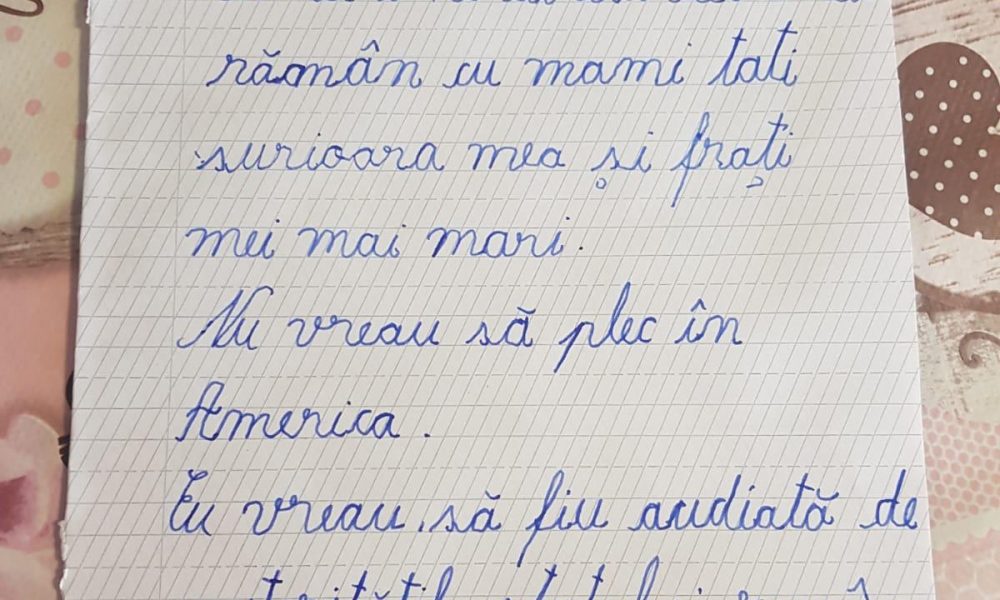 rămân cu mami tati
surioara mea și frați
mei mai mari.
Nu vreau să plec în
America.
Eu vreau să fiu audiată de